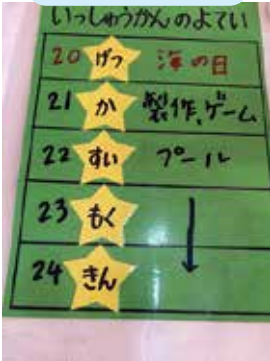 いっしゅうかんのよてい
20 げつ 海の日
21 か 製作、ゲーム
22 すい プール
23 もく
24 きん